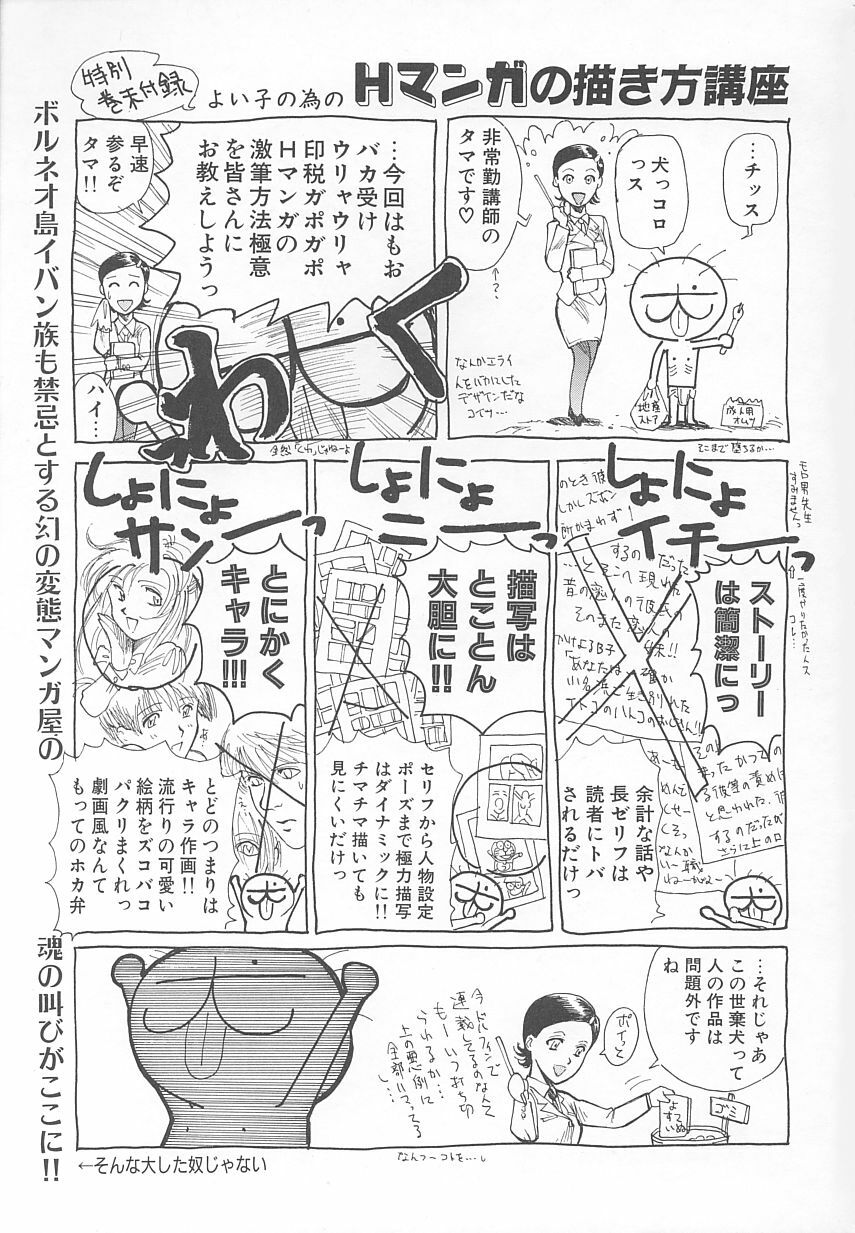 特別
巻末付録
よい子の為の
Hマンガの描き方講座
ボルネオ島イバン族も禁忌とする幻の変態マンガ屋の
魂の叫びがここに!!
…チッス
犬っコロ
っス
非常勤講師の
タマです♡
↑?
なんかエライ
人をバカにした
デザインだな
コイツ…
地産
ストア
成人用
オムツ
そこまで堕ちるか…
…今回はもお
バカ受け
ウリャウリャ
印税ガポガポ
Hマンガの
激筆方法極意
を皆さんに
お教えしようっ
早速
参るぞ
タマ!!
ハイ…
わく
全然「くわ」じゃねーよ
しょにょ
イチーっ
モロ男先生
すみませんっ
ストーリー
は簡潔にっ
余計な話や
長ゼリフは
読者にトバ
されるだけっ
しょにょ
ニーっ
描写は
とことん
大胆に!!
セリフから人物設定
ポーズまで極力描写
はダイナミックに!!
チマチマ描いても
見にくいだけっ
しょにょ
サンーっ
とにかく
キャラ!!!
とどのつまりは
キャラ作画!!
流行りの可愛い
絵柄をズコバコ
パクリまくれっ
劇画風なんて
もってのホカ弁
…それじゃあ
この世棄犬って
人の作品は
問題外です
ね
ポイっと
ゴミ
よすていぬ
今ドルフィンで
連載してるのなんて
もーいつ打ち切
られるか…
上の悪例に
全部入ってる
し…
なんつーコトを…
←そんな大した奴じゃない